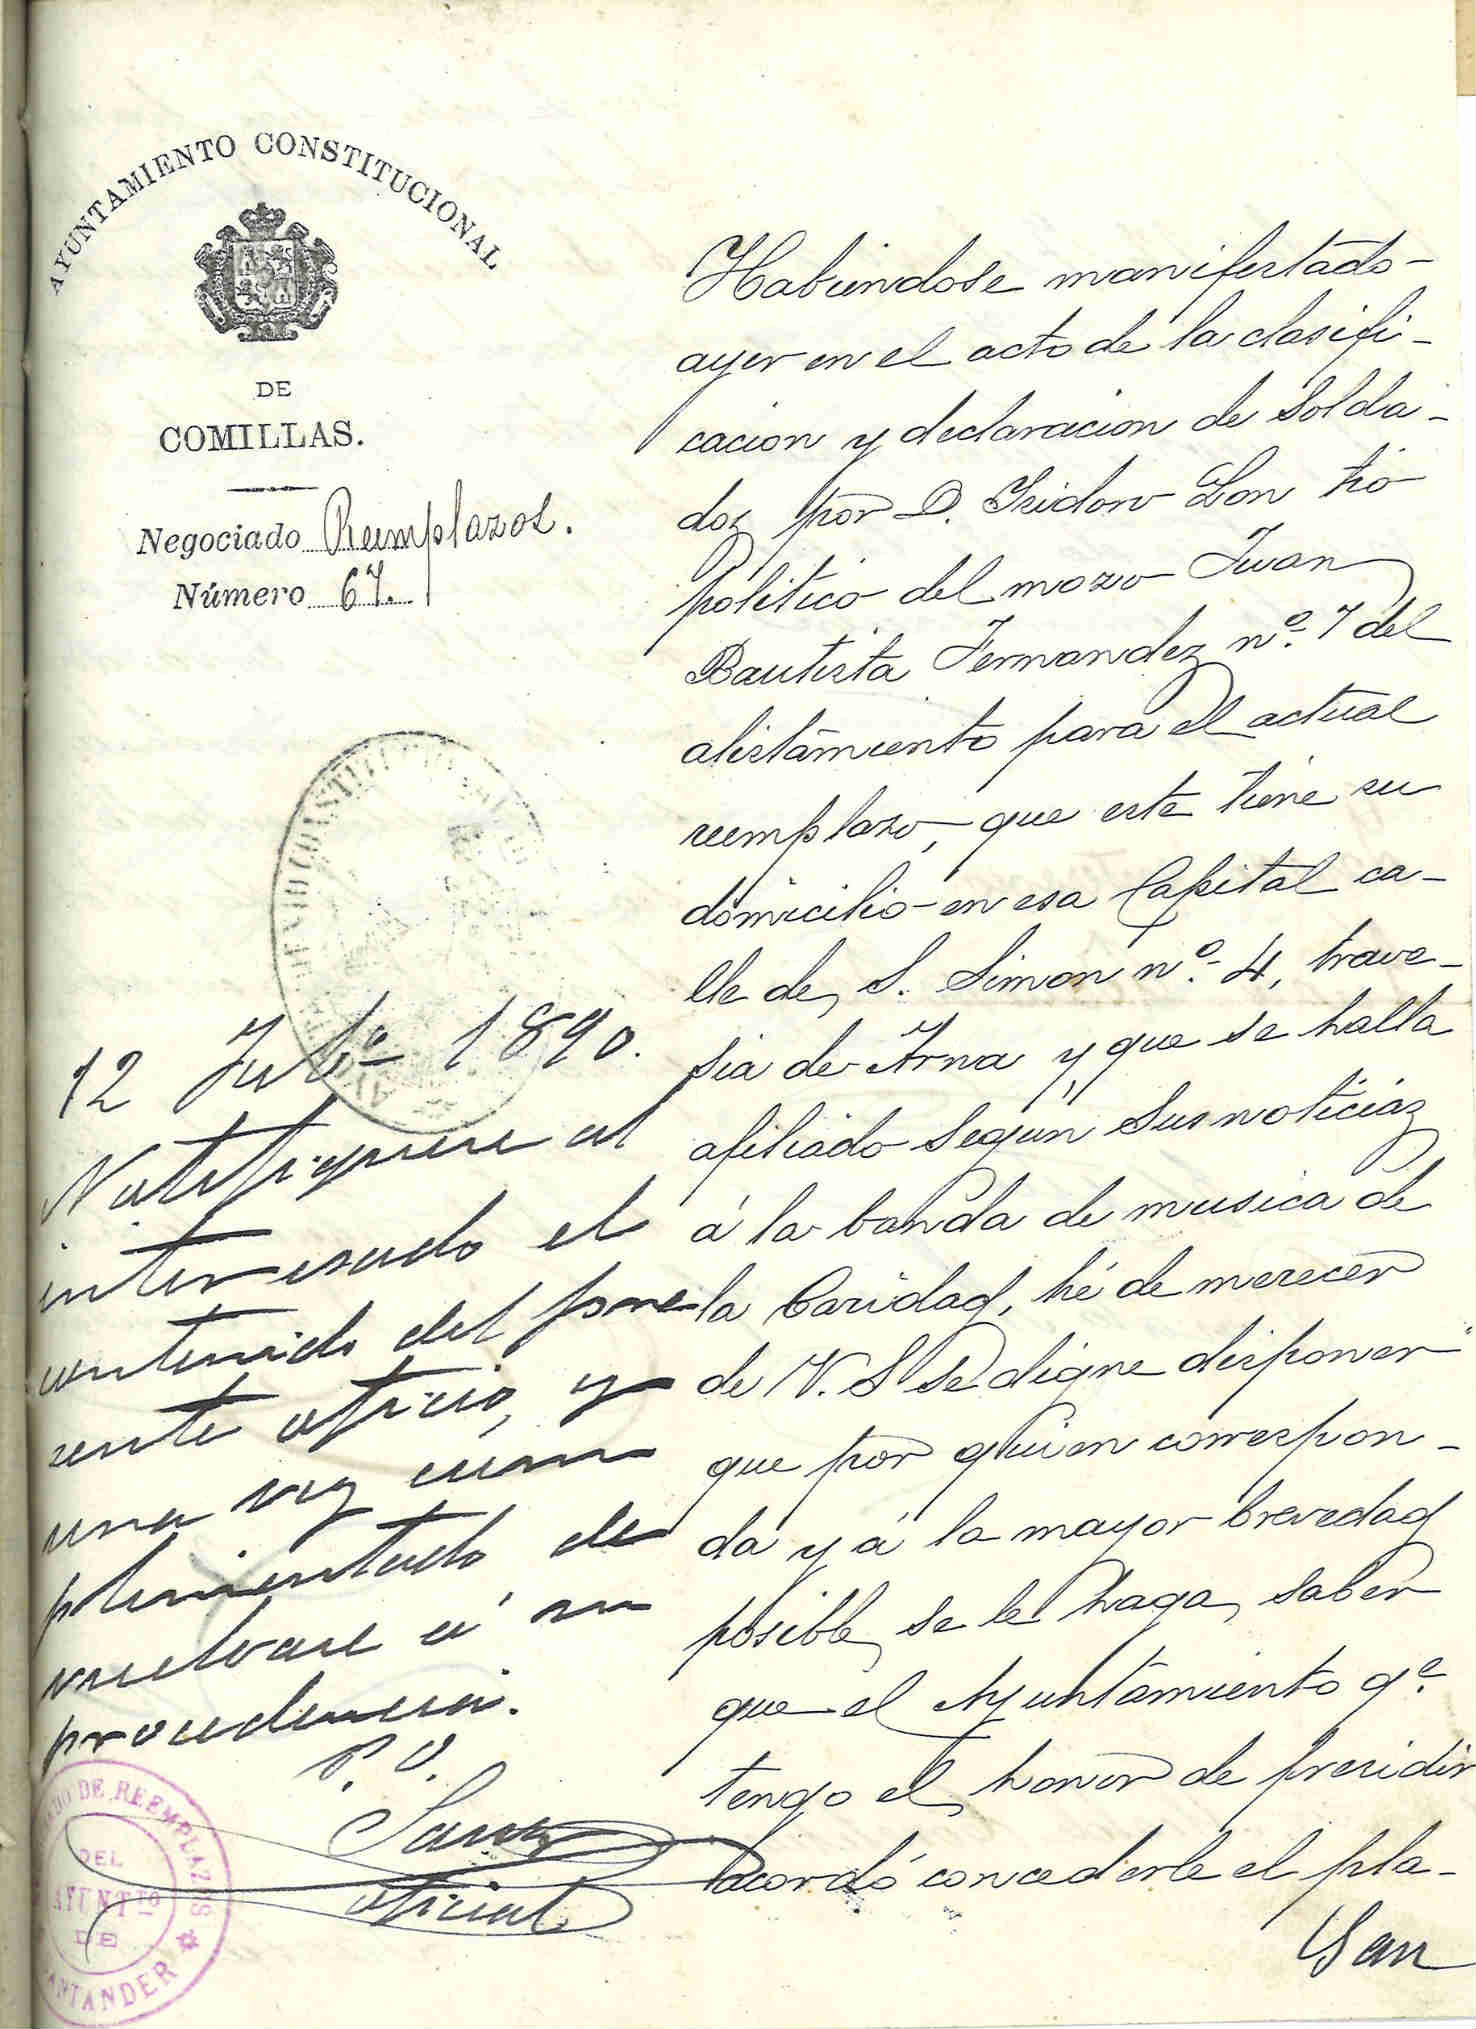 AYUNTAMIENTO CONSTITUCIONAL
DE
COMILLAS.
Negociado Reemplazos.
Número 67.
Habiendose manifestado
ayer en el acto de la clasifi-
cacion y declaracion de solda-
dos por D. Isidoro Lon tio
politico del mozo Juan
Bautista Fernandez nº. 7 del
alistamiento para el actual
reemplazo, que este tiene su
domicilio en esa Capital ca-
lle de S. Simon nº. 4, trave-
sia de Arna y que se halla
afiliado segun sus noticias
á la banda de musica de
la Caridad, hé de merecer
de V. S. se digne disponer
que por quien correspon-
da y á la mayor brevedad
posible, se le haga saber
que el Ayuntamiento qe.
tengo el honor de presidir
acordó concederle el pla-
12 Julio 1890.
Notifiquese al
interesado el
contenido del pre
sente oficio, y
una vez cum
plimentado de
vuelvase á su
procedencia.
P. O.
oficial
DO DE REEMPLAZOS
DEL
AYUNTTO
DE
SANTANDER